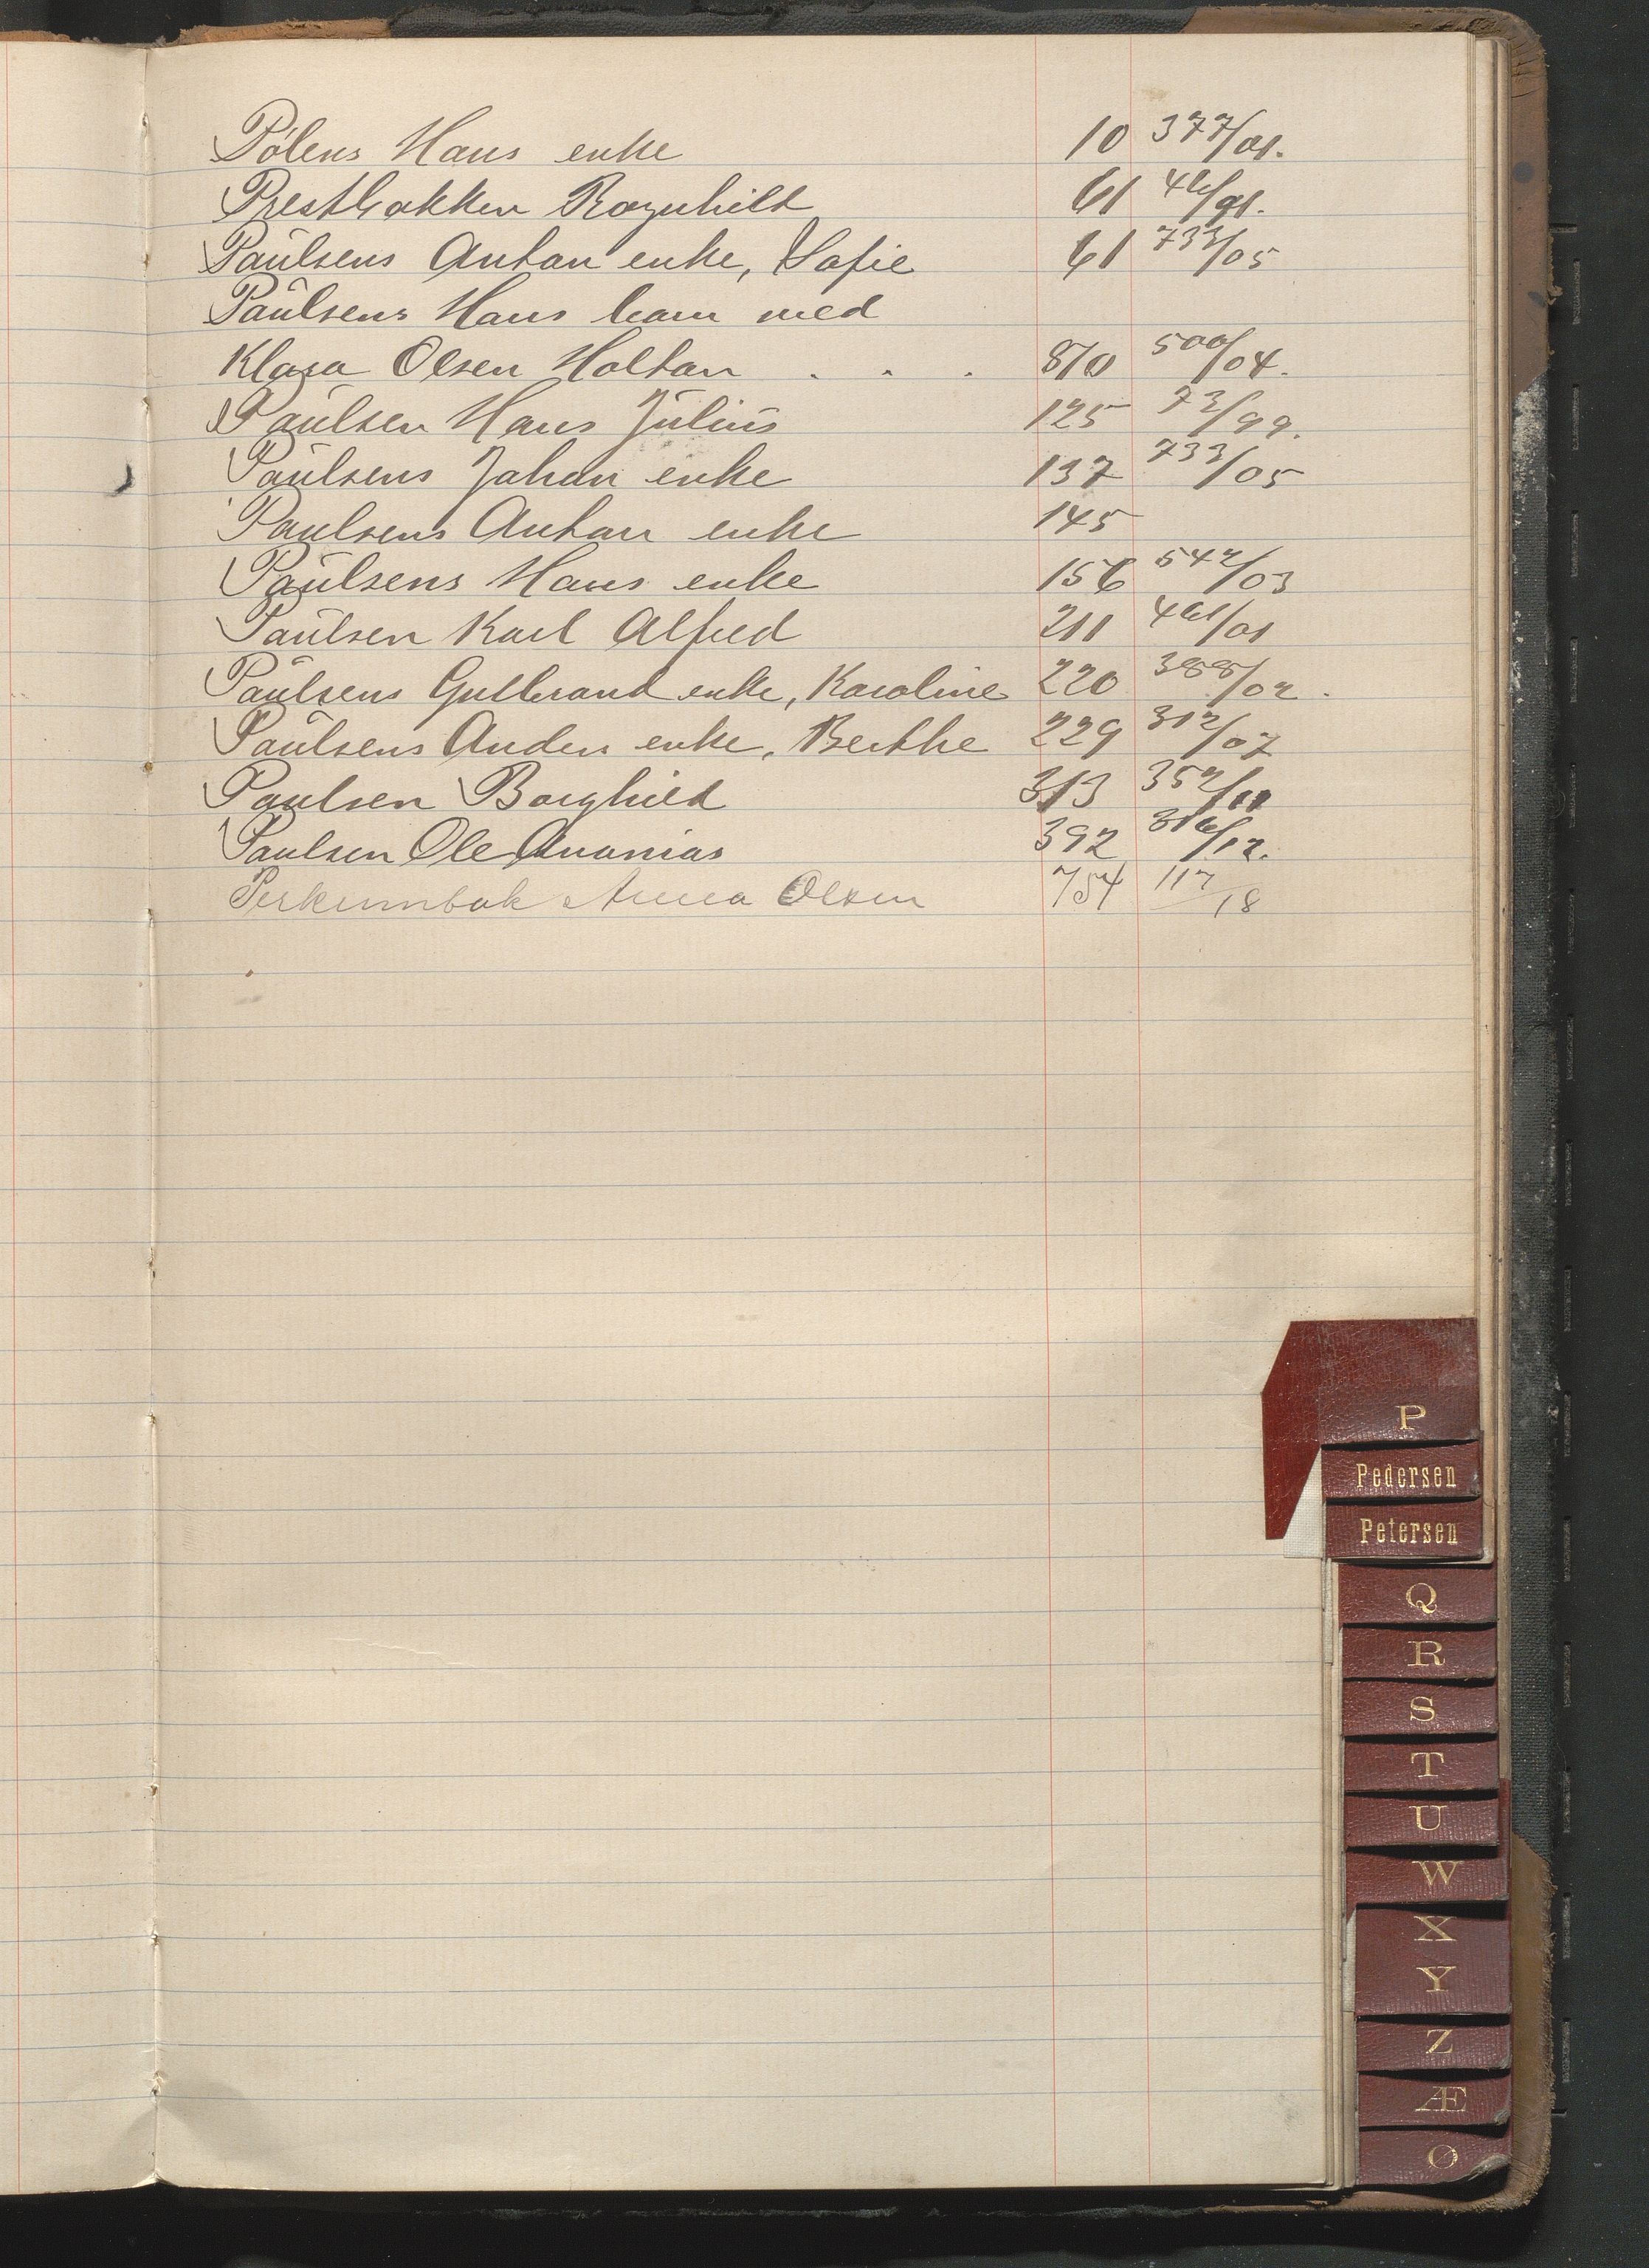 Pølens Hans enke 10 377/01.
Prestbakken Ragnhild 61 46/91.
Paulsens Anton enke, Sofie 61 733/05
Paulsens Hans barn med
Klara Olsen Holtan . . . 80 500/04.
Paulsen Hans Julius 125 73/99.
Paulsens Johan enke 137 733/05
Paulsens Anton enke 145
Paulsens Hans enke 156 542/03
Paulsen Karl Alfred 211 461/01
Paulsens Gulbrand enke, Karoline 220 388/02.
Paulsens Anders enke, Berthe 229 312/07
Paulsen Borghild 313 352/11
Paulsen Ole Ananias 392 316/12.
Perkumbak Anna Olsen 754 117/18
P
Pedersen
Petersen
Q
R
S
T
U
W
X
Y
Z
Æ
Ø